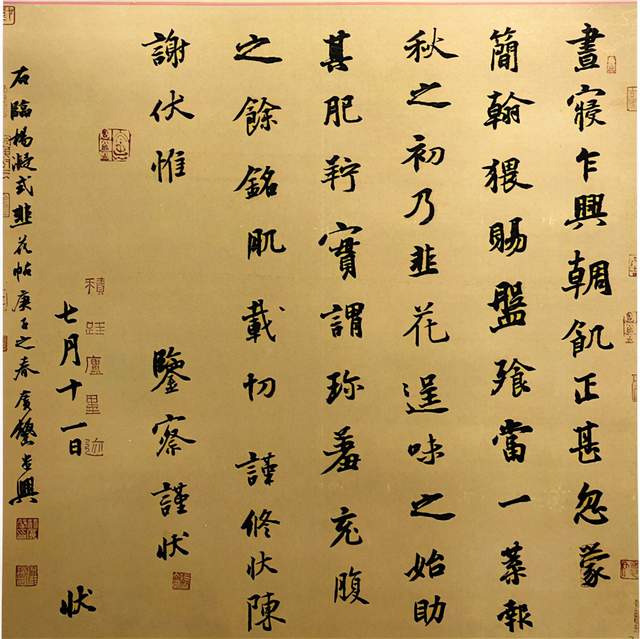 晝寢乍興輖飢正甚忽蒙
簡翰猥賜盤飧當一葉報
秋之初乃韭花逞味之始助
其肥羜實謂珍羞充腹
之餘銘肌載切 謹修狀陳
謝伏惟 鑒察謹狀
七月十一日 狀
積跬廬墨迹
右臨楊凝式韭花帖庚子之春